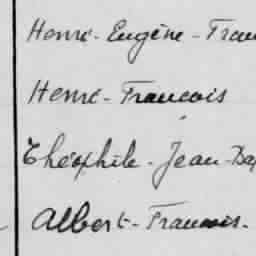 Henri-Eugène-Fran
Henri-Francois
Théophile-Jean-Bap
Albert-Francois.